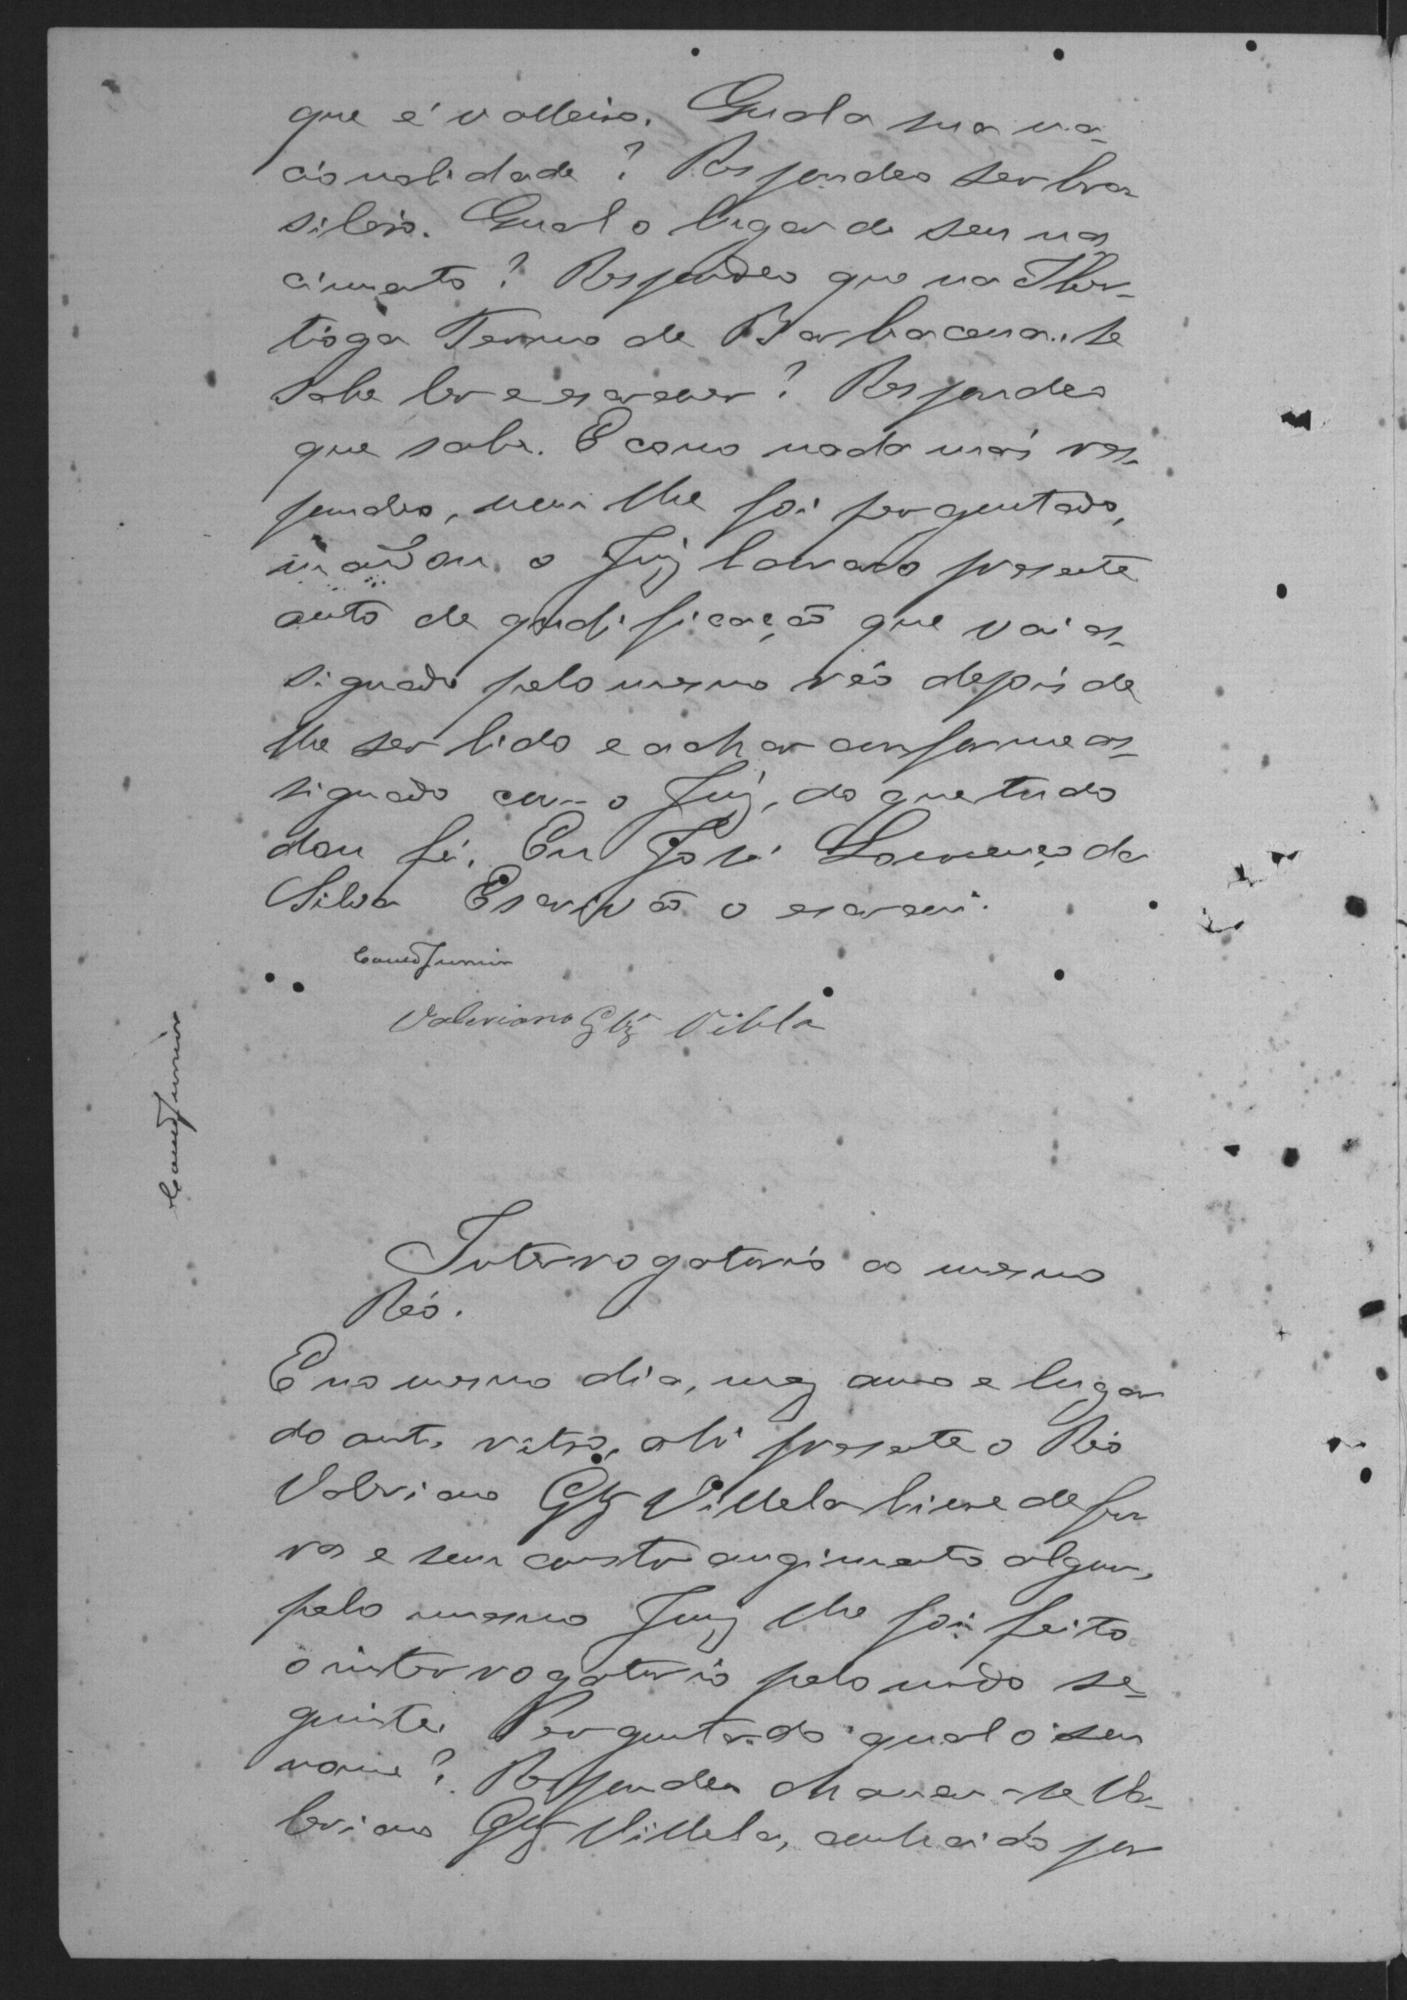 que é valleiro. Qual a sua na-
cionalidade? Respondeo ser bra
sileiro. Qual o lugar de seu nas
cimento? Respondeo que na Iber-
tioga Termo de Barbacena. se
sabe ler e escrever? Respondeo
que sabe. E como nada mais res-
pondeo, nem lhe foi perguntado,
mandou o Juiz lavrar o presente
auto de qualificação que vai as-
signado pelo mesmo réo depois de
lhe ser lido e achar conforme as-
signado com o Juiz, do que tudo
dou fé. Eu José Lourenço da
Silva Escrivão o escrevi.
Junior
Valeriano Glz Vilela
Junior
Interrogatorio ao mesmo
Réo.
E no mesmo dia, mez anno e lugar
do auto retro, ahi presente o Réo
Valeriano Glz Villela livre de fer
ros e sem constrangimento algum,
pelo mesmo Juiz lhe foi feito
o interrogatorio pelo modo se-
guinte. Perguntado qual o seu
nome? Respondeu chamar-se Va-
leriano Glz Villela, conhecido por